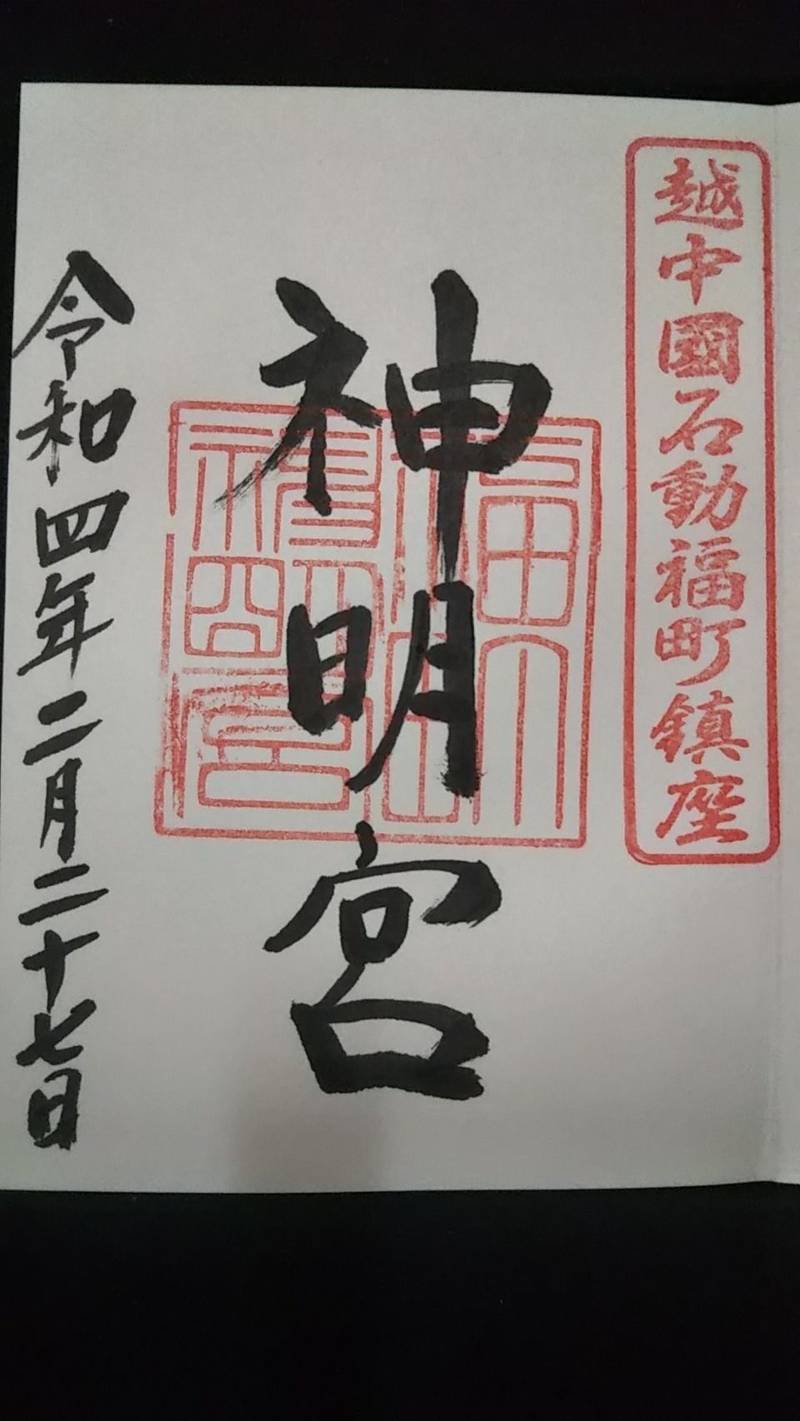 越中國石動福町鎮座
神明宮
令和四年二月二十七日